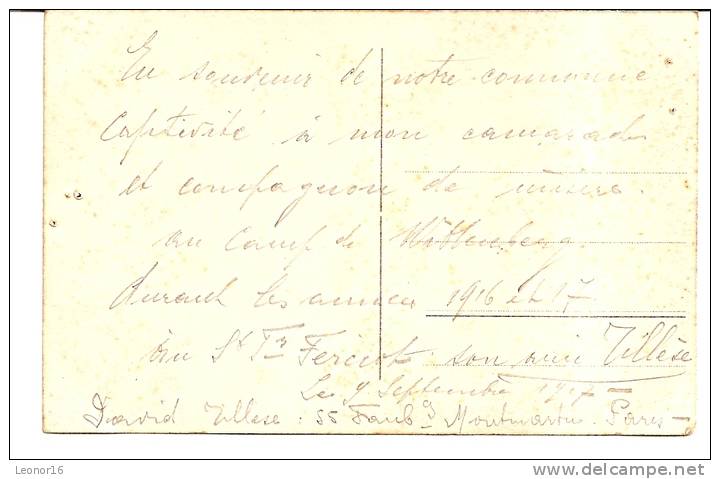 En souvenir de notre commune
captivité à mon camarade
et compagnon de misère
au camp de Wittenberg.
durant les années 1916 et 17
au St Fr son ami Villèse
Le 9 Septembre 1917 —
David Villese : 55 Faubg Montmartre. Paris —
Leonor16
delcampe.net